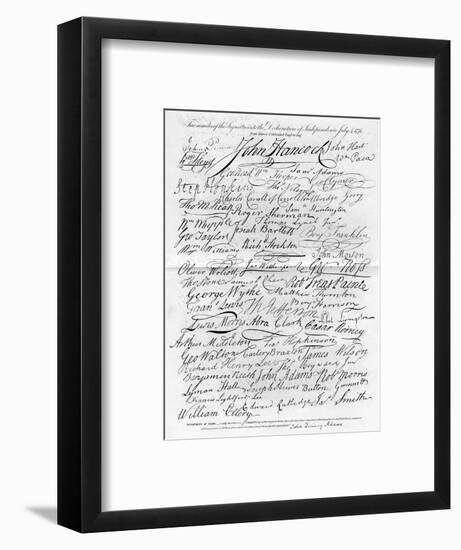 Fac-similes of the Signatures to the Declaration of Independence July 4, 1776.
John Penn John Hancock John Hart
Wm Paca
Wm Hooper Saml Adams
Step Hopkins Geo Clymer
Charles Carroll of Elbridge Gerry
Tho M:Kean Roger Sherman Saml Huntington
Wm Whipple Thomas Lynch Junr
Geo Taylor Josiah Bartlett Benj Franklin
Wm Williams Richd Stockton
John Morton
Oliver Wolcott Geo Ross
Tho Stone Samuel Chase Robt Treat Paine
George Wythe Matthew Thornton
Fran Lewis Th Jefferson Benj Harrison
Lewis Morris Abra Clark Caesar Rodney
Arthur Middleton Fras Hopkinson
Geo Walton Carter Braxton James Wilson
Richard Henry Lee Tho Heyward Junr
Benjamin Rush John Adams Robt Morris
Lyman Hall Joseph Hewes Button Gwinnett
Francis Lightfoot Lee
William Ellery Edward Rutledge Jas Smith
John Quincy Adams